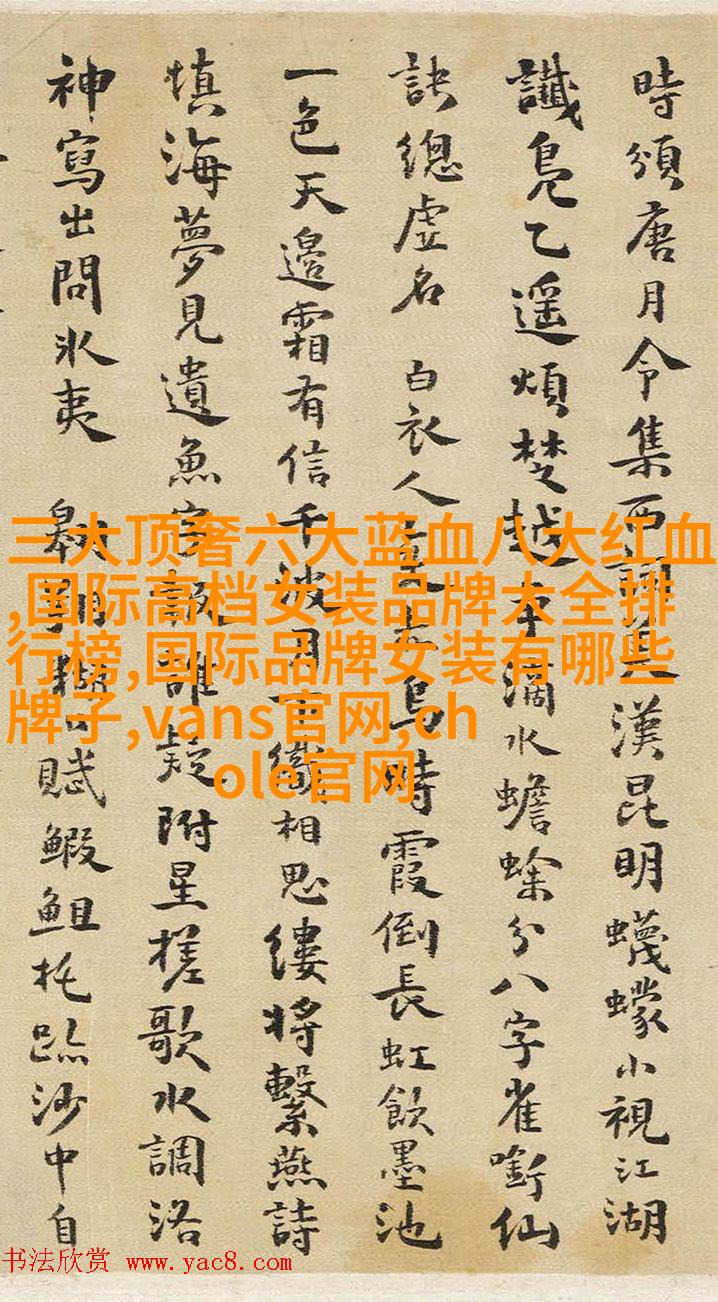 時頒唐月令集西詞是漢昆明蠛蠓小視江湖
讖鳧乙遥煩楚越本滴水蟾蜍分八字雀銜仙
訣總虛名 白衣人意右烏時霞倒長虹飲墨池
一色天邊霜有信千波月下織相思縷將繫燕詩
填海夢見遺魚客歌誰疑附星槎歌水調洛
神寫出問氷夷 翱翔賦鰕䱉托跡沙中自
三大顶奢六大蓝血八大红血
,国际高档女装品牌大全排
行榜,国际品牌女装有哪些
牌子,vans官网,ch
ole官网
书法欣赏 www.yac8.com